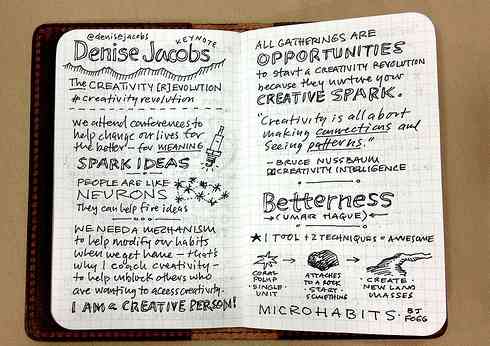 @denisejacobs
KEYNOTE
Denise Jacobs
The CREATIVITY [R]EVOLUTION
#creativityrevolution
we attend conferences to
help change our lives for
the better – for MEANING
SPARK IDEAS
PEOPLE ARE LIKE
NEURONS
They can help fire ideas
WE NEED A MECHANISM
to help modify our habits
when we get home – that's
why I coach creativity –
to help unblock others who
are wanting to access creativity.
I AM a CREATIVE PERSON!
ALL GATHERINGS ARE
OPPORTUNITIES
to start a CREATIVITY REVOLUTION
because they nurture your
CREATIVE SPARK.
"Creativity is all about
making connections and
seeing patterns."
– BRUCE NUSSBAUM
CREATIVITY INTELLIGENCE
Betterness
(UMAIR HAQUE)
★ 1 TOOL + 2 TECHNIQUES = AWESOME
CORAL
POLYP
· SINGLE
UNIT
ATTACHES
TO A ROCK
· START
SOMETHING
CREATE
· NEW LAND
MASSES
MICROHABITS · BJ
FOGG